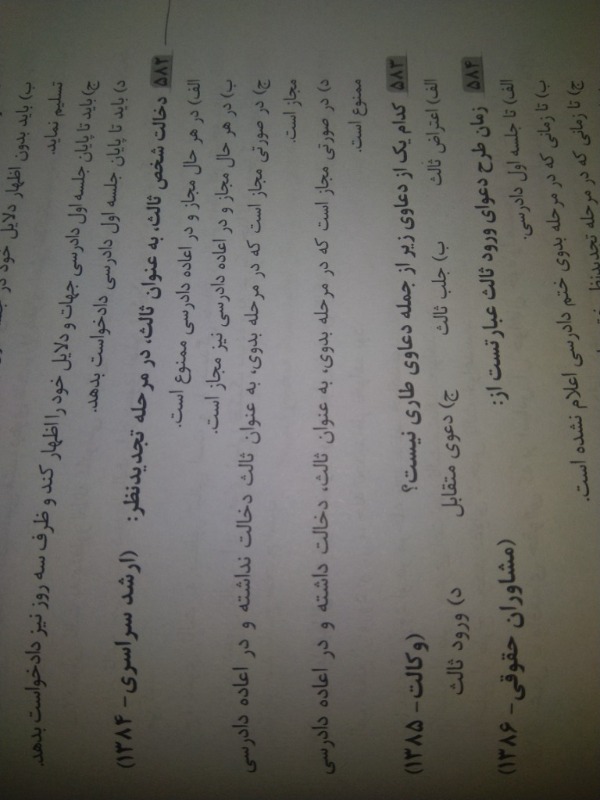 ب) باید بدون اظهار دلایل خود در
تسلیم نماید.
ج) باید تا پایان جلسه اول دادرسی جهات و دلایل خود را اظهار کند و ظرف سه روز نیز دادخواست بدهد.
د) باید تا پایان جلسه اول دادرسی دادخواست بدهد.
۵۸۲ دخالت شخص ثالث، به عنوان ثالث، در مرحله تجدیدنظر: (ارشد سراسری - ۱۳۸۴)
الف) در هر حال مجاز و در اعاده دادرسی ممنوع است.
ب) در هر حال مجاز و در اعاده دادرسی نیز مجاز است.
ج) در صورتی مجاز است که در مرحله بدوی، به عنوان ثالث دخالت نداشته و در اعاده دادرسی
مجاز است.
د) در صورتی مجاز است که در مرحله بدوی، به عنوان ثالث، دخالت داشته و در اعاده دادرسی
ممنوع است.
۵۸۳ کدام یک از دعاوی زیر از جمله دعاوی طاری نیست؟ (وکالت - ۱۳۸۵)
الف) اعتراض ثالث ب) جلب ثالث ج) دعوی متقابل د) ورود ثالث
۵۸۴ زمان طرح دعوای ورود ثالث عبارتست از: (مشاوران حقوقی - ۱۳۸۶)
الف) تا جلسه اول دادرسی.
ب) تا زمانی که در مرحله بدوی ختم دادرسی اعلام نشده است.
ج) تا زمانی که در مرحله تجدیدنظر